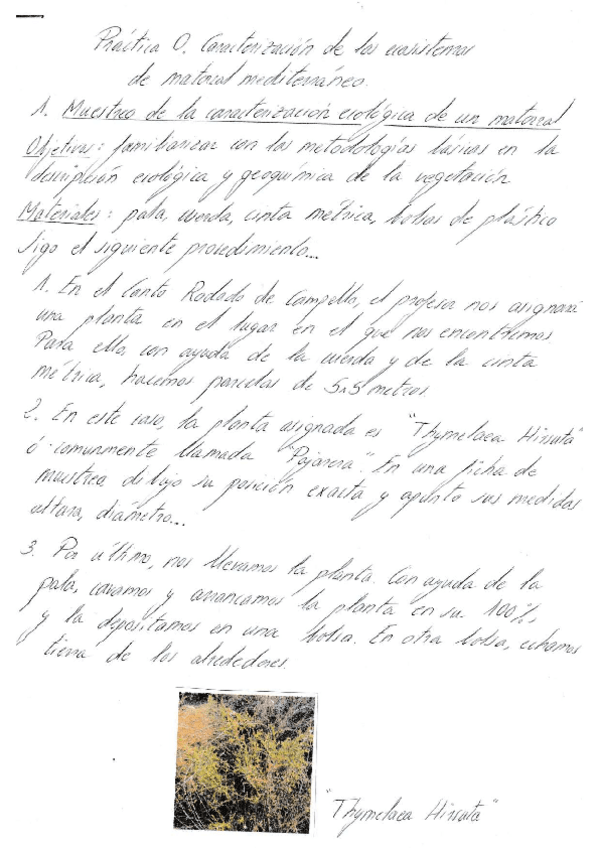 Práctica 0. Caracterización de los ecosistemas
de matorral mediterráneo.
1. Muestreo de la caracterización ecológica de un matorral
Objetivos: familiarizar con las metodologías básicas en la
descripción ecológica y geoquímica de la vegetación
Materiales: pala, cuerda, cinta métrica, bolsas de plástico
Sigo el siguiente procedimiento...
1. En el Canto Rodado de Campello, el profesor nos asignará
una planta en el lugar en el que nos encontremos.
Para ello, con ayuda de la cuerda y de la cinta
métrica, hacemos parcelas de 5x5 metros.
2. En este caso, la planta asignada es "Thymelaea Hirsuta"
ó comunmente llamada "Pajarera". En una ficha de
muestreo, dibujo su posición exacta y apunto sus medidas
altura, diámetro...
3. Por último, nos llevamos la planta. Con ayuda de la
pala, cavamos y arrancamos la planta en su 100%,
y la depositamos en una bolsa. En otra bolsa, echamos
tierra de los alrededores.
"Thymelaea Hirsuta"